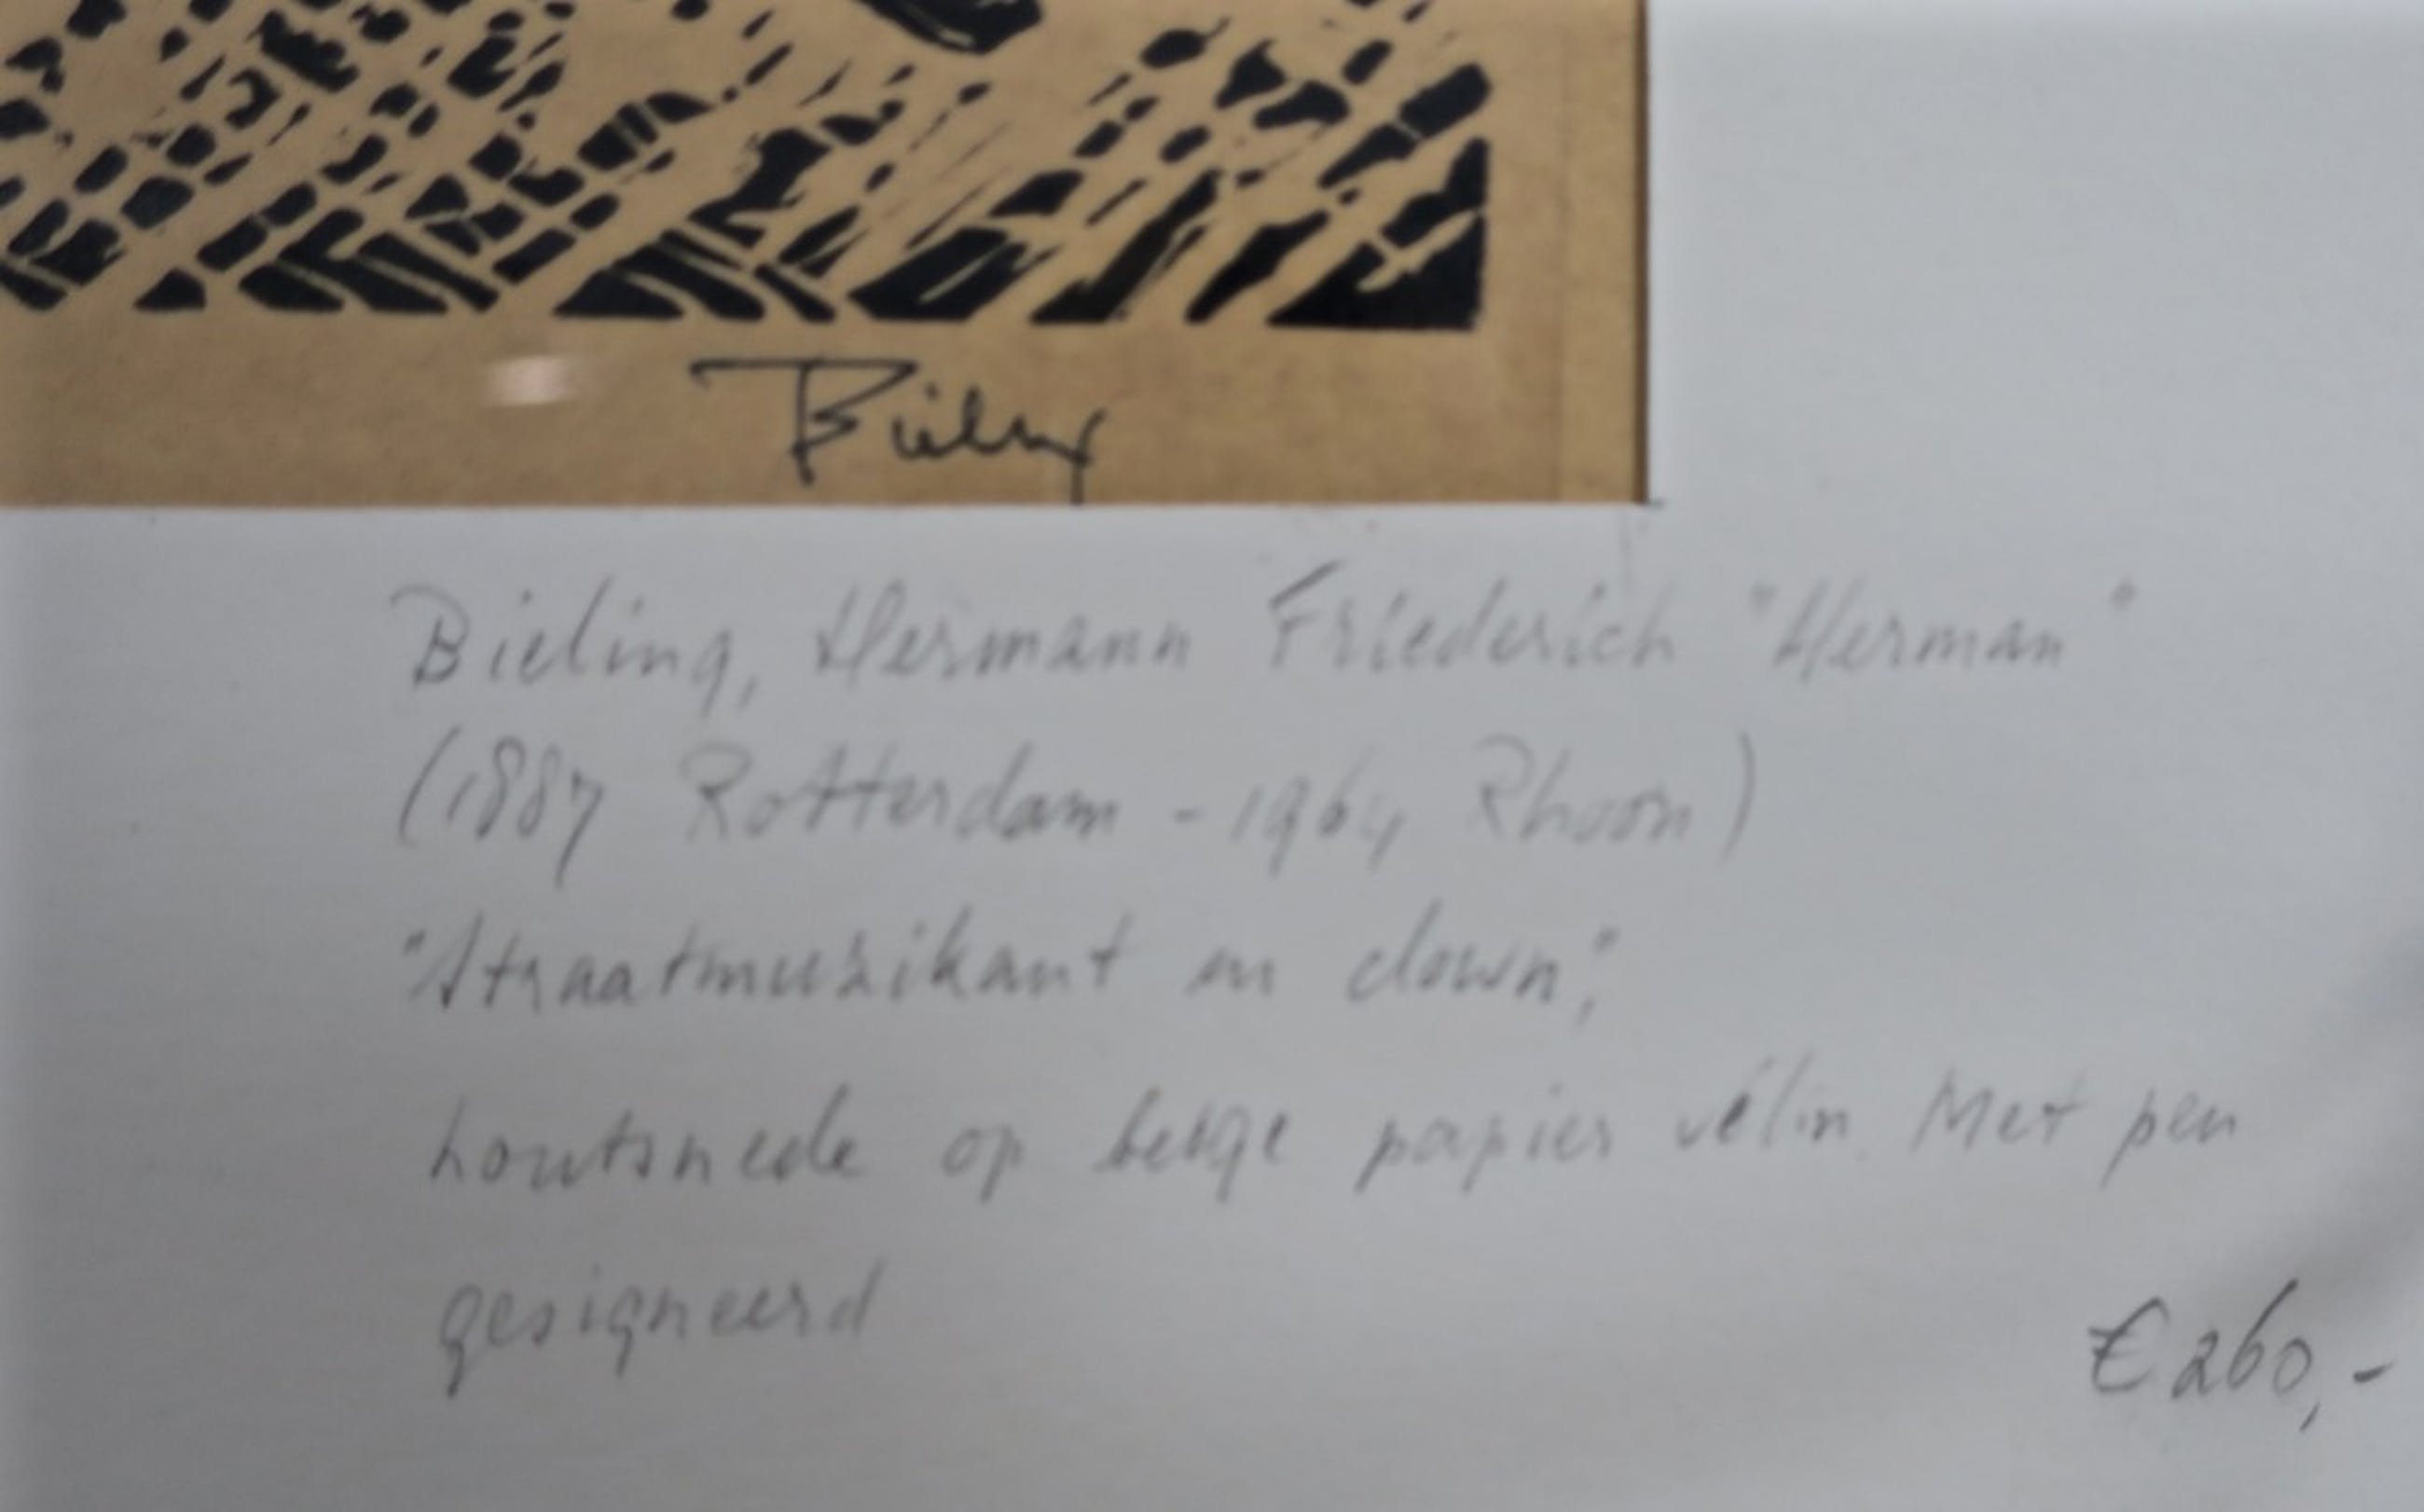 Bieling
Bieling, Hermann Friederich "Herman"
(1887 Rotterdam - 1964 Rhoon)
"Straatmuzikant en clown",
houtsnede op beige papier vélin. Met pen
gesigneerd
€ 260,-